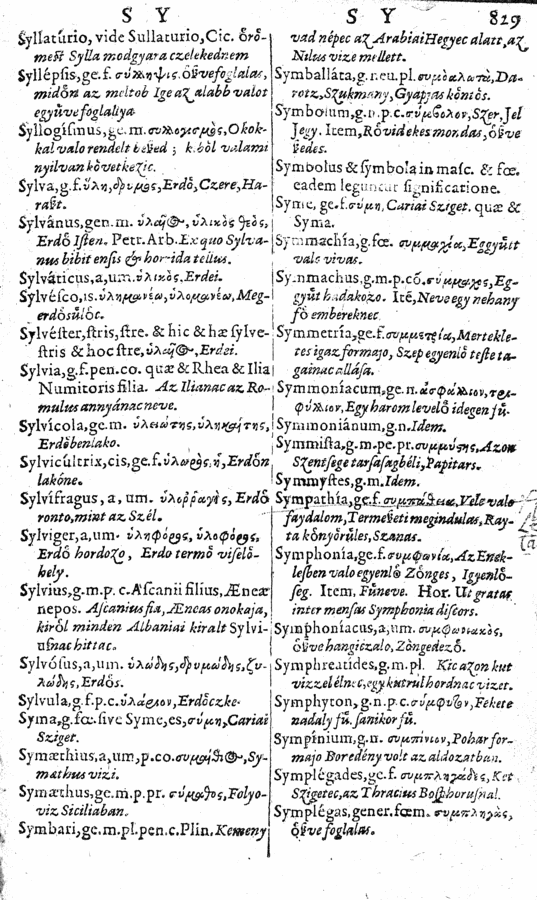 S Y
S Y 829
Syllaturio, vide Sullaturio, Cic. ôrô-
mest Sylla modgyara czelekednem
Syllépsis, ge. f. σύλληψις. ôszvefoglalas,
midôn az meltob Ige az alabb valot
egyûve foglallya
Syllogísmus, ge. m. συλλογισμὸς, Okok-
kal valo rendelt beszed ; k. bôl valami
nyilvan kôvetkezic.
Sylva, g. f. ὕλη, δρυμὸς, Erdô, Czere, Ha-
raszt.
Sylvânus, gen. m. ὑλαῖος, ὑλικὸς θεὸς,
Erdô Isten. Petr. Arb. Ex quo Sylva-
nus bibit ensis & horrida tellus.
Sylváticus, a, um. ὑλικὸς. Erdei.
Sylvésco, is. ὑλημανέω, ὑλομανέω, Meg-
erdôsûlôc.
Sylvéster, stris, stre. & hic & hæ sylve-
stris & hoc stre, ὑλαῖος, Erdei.
Sylvia, g. f. pen. co. quæ & Rhea & Ilia
Numitoris filia. Az Ilianac az Ro-
mulus annyánac neve.
Sylvícola, ge. m. ὑλειώτης,
Erdôbenlako.
Sylvicúltrix, cis, ge. f. ὑλωρὸς, ἡ, Erdôn
lakóne.
Sylvífragus, a, um. ὑλορραγὴς, Erdô
ronto, mint az Szél.
Sylviger, a, um. ὑληφόρος, ὑλοφόρος,
Erdô hordozo, Erdo termô viselô-
hely.
Sylvius, g. m. p. c. Ascanii filius, Æneæ
nepos. Ascanius fia, Æneas onokaja,
kirôl minden Albaniai kiralt Sylvi-
usnac hittac.
Sylvósus, a, um. ὑλώδης, δρυμώδης, ξυ-
λώδης, Erdôs.
Sylvula, g. f. p. c. ὑλάριον, Erdôczke.
Syma, g. fœ. sive Syme, es, σύμη, Cariai
Sziget.
Symæthius, a, um, p. co. συμαίθιος, Sy-
mæthus vizi.
Symæthus, ge. m. p. pr. σύμαιθος, Folyo-
viz Siciliaban.
Symbari, ge. m. pl. pen. c. Plin. Kemeny
vad népec az Arabiai Hegyec alatt, az
Nilus vize mellett.
Symballáta, g. neu. pl. συμβαλλωτὰ, Da-
rotz, Szukmany, Gyapjas kôntôs.
Symbolum, g. n. p. c. σύμβολον, Szer, Jel
Jegy. Item, Rôvid ekes mondas, ôszve
szedes.
Symbolus & symbola in masc. & fœ.
eadem leguntur significatione.
Syme, ge. f. σύμη, Cariai Sziget. quæ &
Syma.
Symmachía, g. fœ. συμμαχία, Eggyûtt
valo vivas.
Symmachus, g. m. p. cô. συμμαχος, Eg-
gyût hadakozo. Itê, Neve egy nehany
fô embereknec.
Symmetría, ge. f. συμμετρία, Mertekle-
tes igaz formajo, Szep egyenlô teste ta-
gainac allása.
Symmoníacum, ge. n. ἀσφάλτιον, τρι-
φύλλιον, Egy harom levelô idegen fû.
Symmoniánum, g. n. Idem.
Symmísta, g. m. pe. pr. συμμύστης, Azon
Szentsege tarsasagbéli, Papitars.
Symmystes, g. m. Idem.
Sympathía, ge. f. συμπάθεια, Vele valo
faydalom, Termeszeti megindulas, Ray-
ta kônyôrûles, Szanas.
Symphonía, ge. f. συμφωνία, Az Enek-
lesben valo egyenlô Zônges, Igyenlô-
ség. Item, Fûneve. Hor. Ut gratas
inter mensas Symphonia discors.
Symphoníacus, a, um. συμφωνιακὸς,
ôszve hangiczalo, Zôngedezô.
Symphreatides, g. m. pl. Kic azon kut
vizzel élnec, egy kutrul hordnac vizet.
Symphyton, g. n. p. c. σύμφυτον, Fekete
nadaly fû. sanikor fû.
Sympínium, g. n. συμπίνιον, Pohar for-
majo Boredény volt az aldozatban.
Symplégades, ge. f. συμπληγάδες, Ket
Szigetec, az Thracius Bosphorusnal.
Symplégas, gener. fœm. συμπληγὰς,
ôszve foglalas.